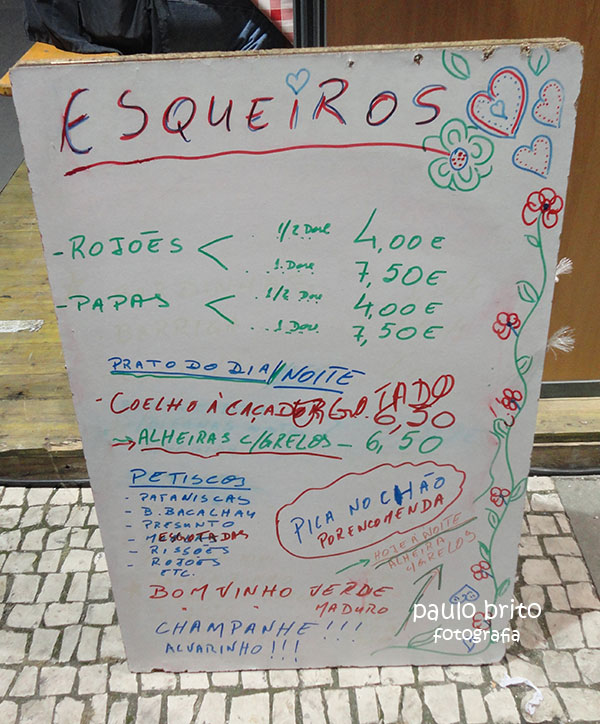 ESQUEiROS
- ROJÕES < 1/2 Dose 4,00€
1 Dose 7,50€
- PAPAS < 1/2 Dose 4,00€
1 Dose 7,50€
PRATO DO DIA//NOITE
- COELHO À CAÇADOR 6,50
ESGOTADO
→ ALHEIRAS C/GRELOS - 6,50
PETISCOS
- PATANISCAS
- B. BACALHAU
- PRESUNTO
- ESGOTADAS
- RISSÕES
- ROJÕES
ETC.
PICA NO CHÃO
POR ENCOMENDA
HOJE À NOITE
ALHEIRA
C/GRELOS
BOM VINHO VERDE
" " MADURO
CHAMPANHE!!!
ALVARINHO!!!
paulo brito
fotografia